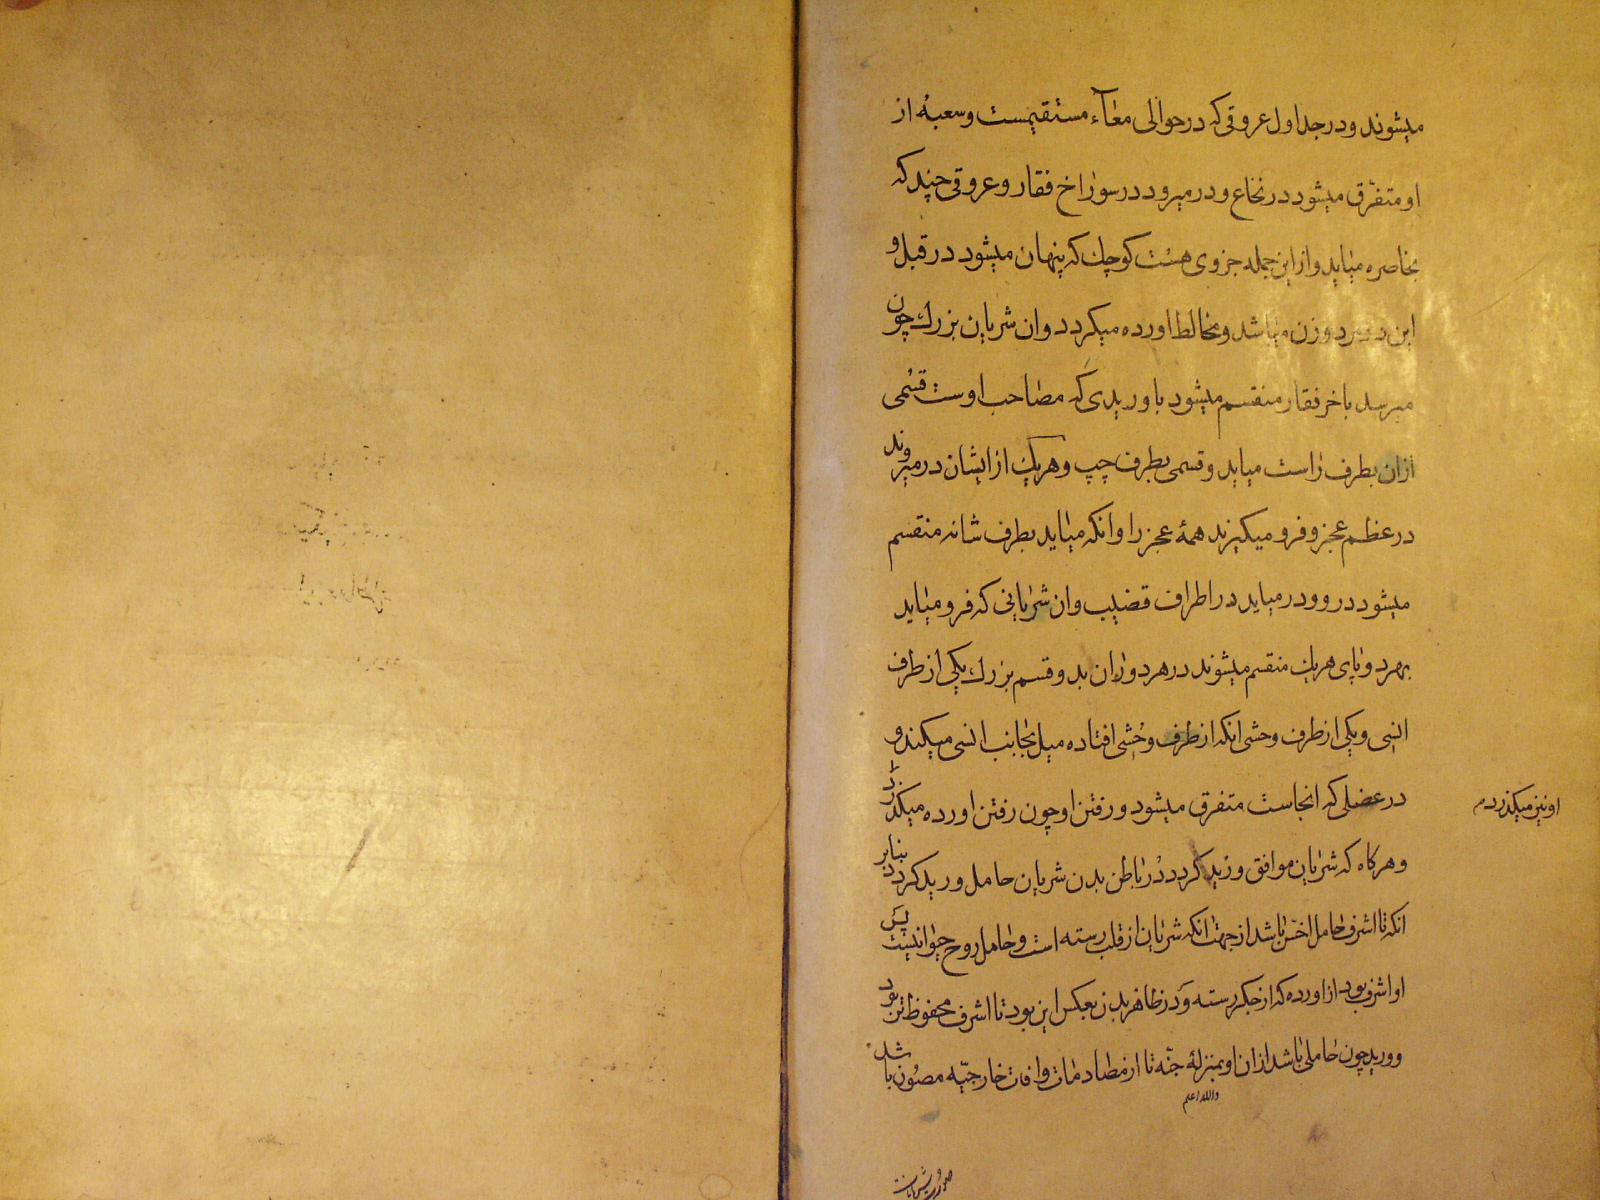 میشوند و در جداول عروقی که در حوالی معآء مستقیمست و سعبهٔ از
او متفرق میشود در نخاع و در میرود در سوراخ فقار و عروقی چند که
بخاصره میاید و از این جمله جزوی هست کوچك که پنهان میشود در قبل و
این در مرد و زن میباشد و مخالط اورده میکردد و ان شریان بزرك چون
میرسد باخر فقار منقسم میشود با وریدی که مصاحب اوست قسمی
ازان بطرف راست میاید و قسمی بطرف چپ و هریك از ایشان در میروند
در عظم عجز و فرو میکیرند همهٔ عجز را و انکه میاید بطرف شانه منقسم
میشود در و و در میاید در اطراف قضیب و ان شریانی که فرو میاید
بهر دو پای هریك منقسم میشوند در هر دو ران بدو قسم بزرك یکی از طرف
انسی و یکی از طرف وحشی انکه از طرف وحشی افتاده میل بجانب انسی میکند و
در عضلی که انجاست متفرق میشود و رفتن او چون رفتن اورده میکذرد
او نیز میکذرد م
و هرکاه که شریان موافق ورید کردد در باطن بدن شریان حامل ورید کردد بنابر
انکه تا اشرف حامل اخس باشد از جهت انکه شریان از قلب رسته است و حامل روح حیوانیست پس
او اشرف بود از اورده که از جکر رسته و در ظاهر بدن بعکس این بود تا اشرف محفوظ تر بود
و ورید چون حاملی باشد ازان او بمنزلهٔ جنّه تا از مصادمات و افات خارجیّه مصون باشد
والله اعلم
صورت شریانست